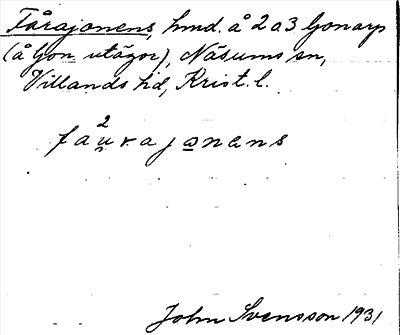 Fårajonens, hmd. å 2 a 3 Gonarp
(å Gon. utägor), Näsums sn,
Villands hd, Krist. l.
2
fau̯rajo̲nens
John Svensson 1931